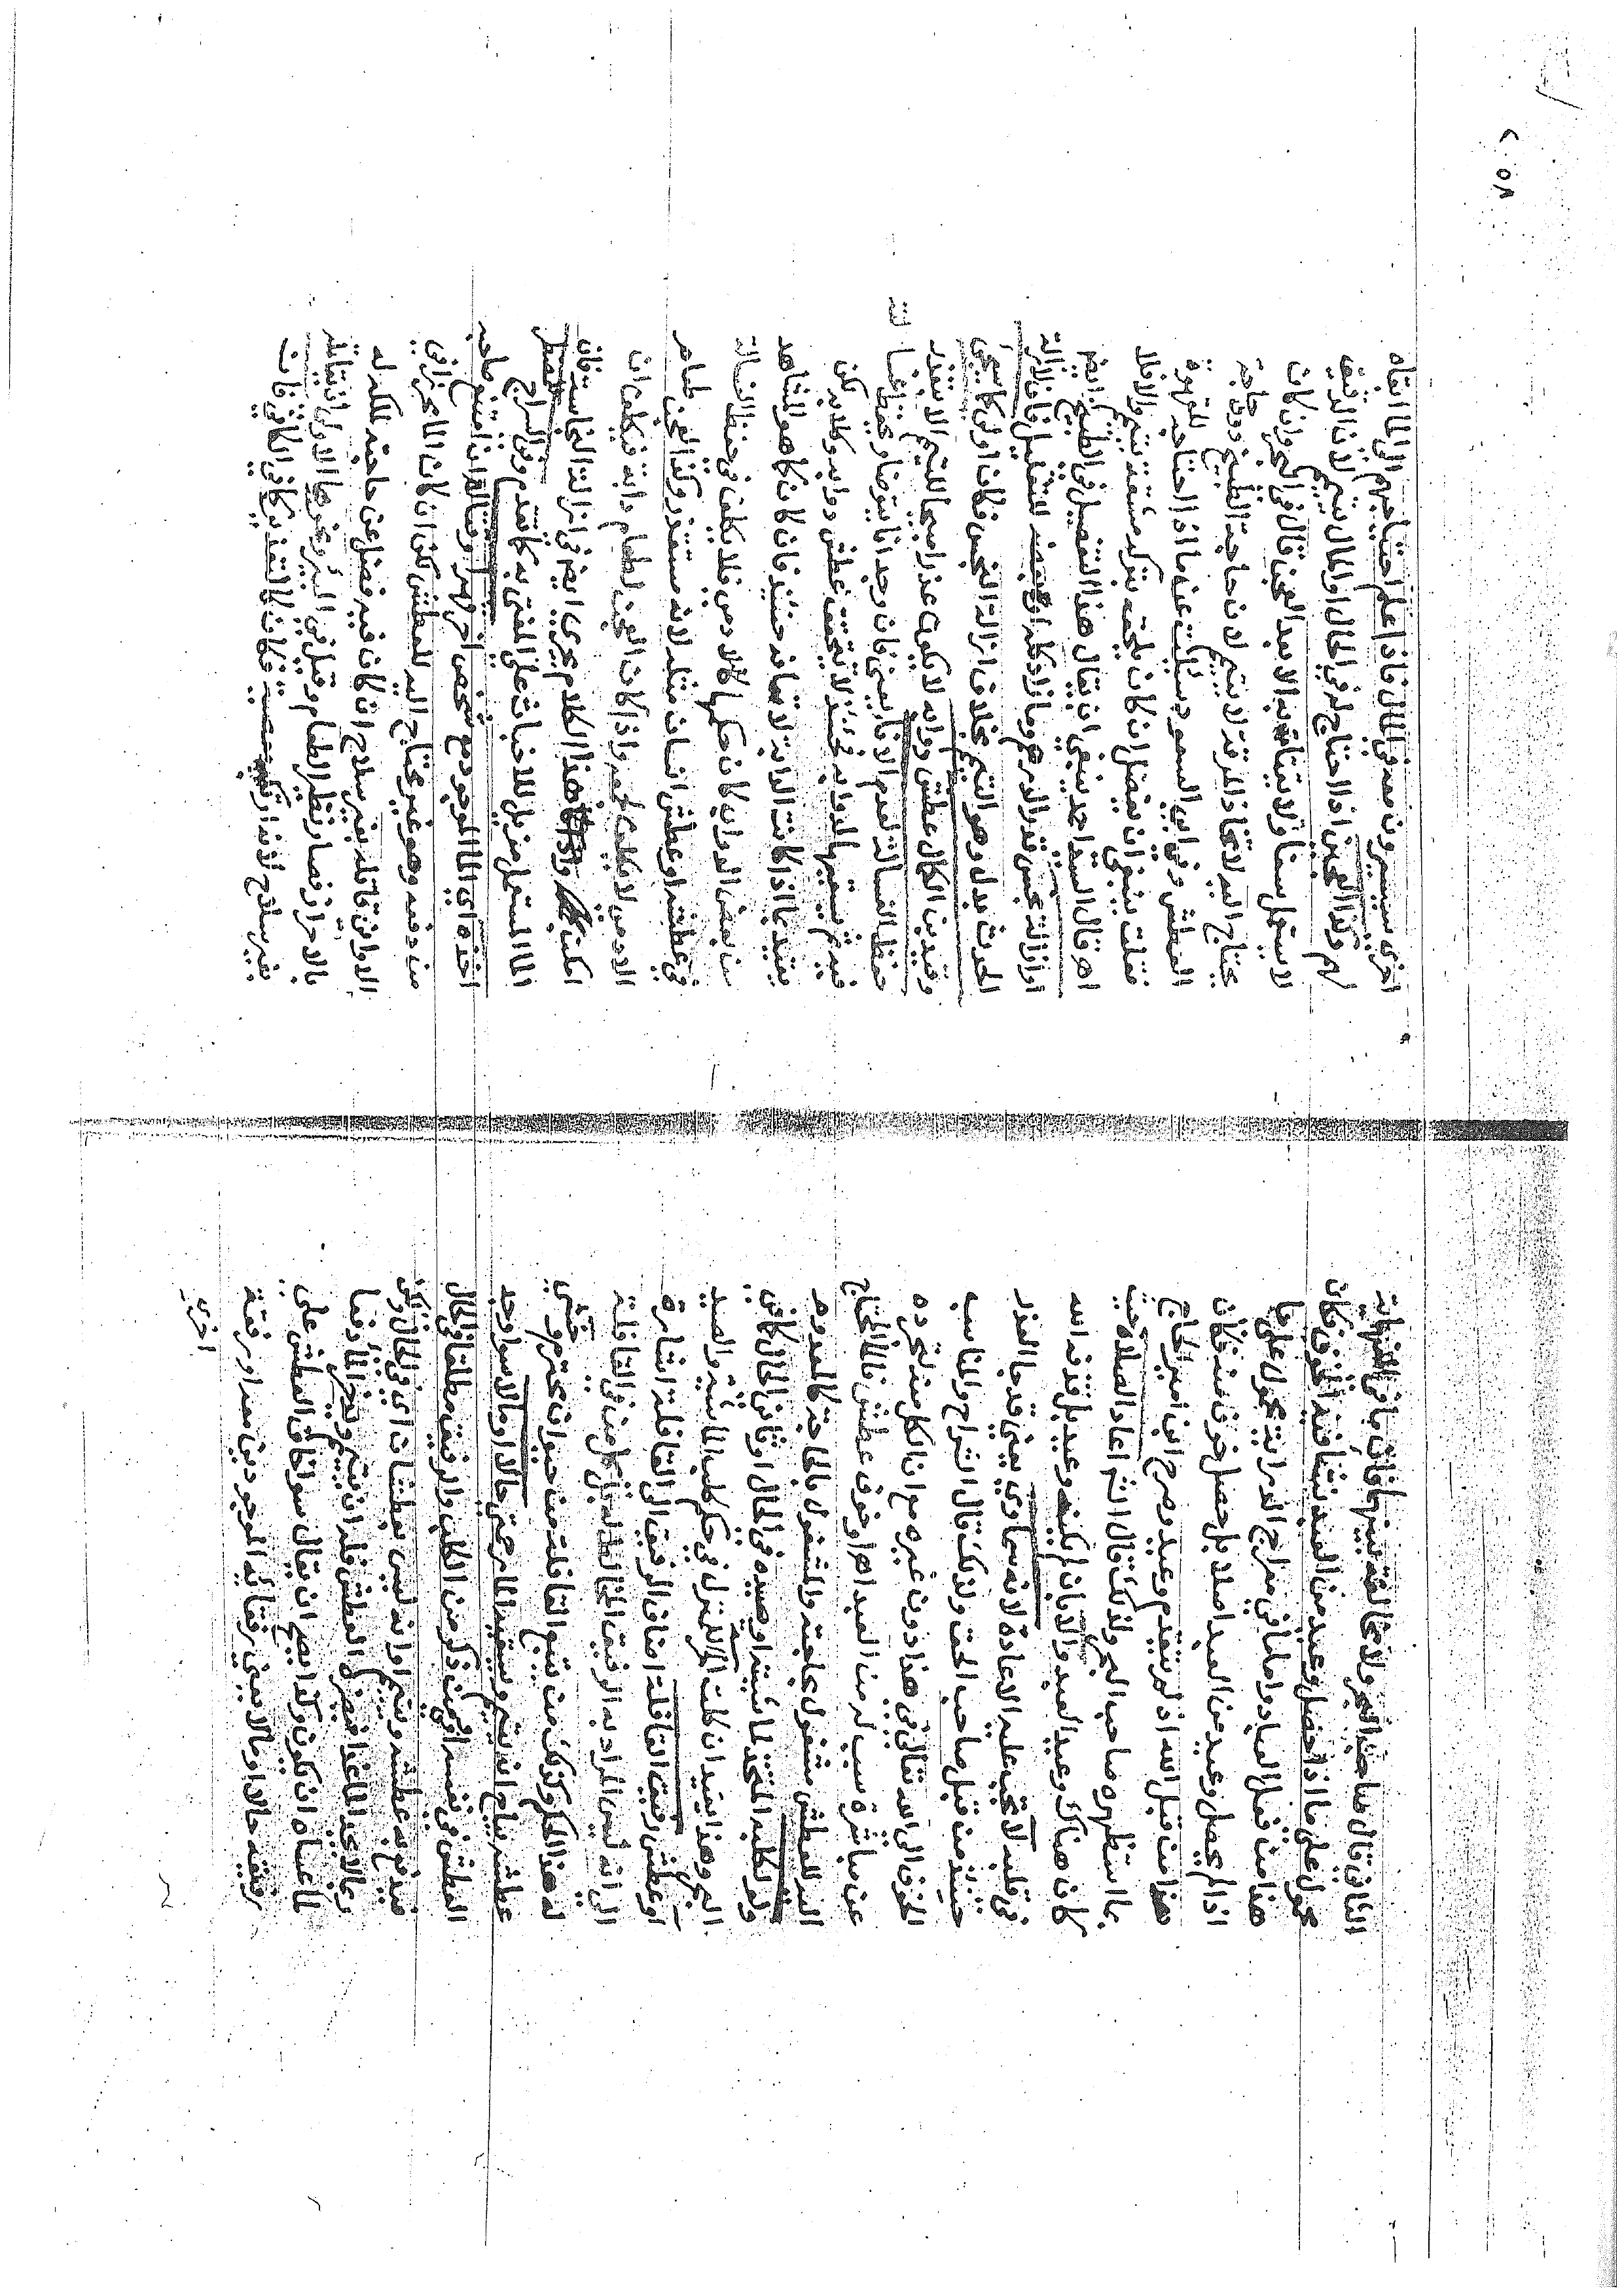 الثاني قال صاحب البحر ولا مخالفة بينهما فان ما في النهاية
محمول على ما اذا حصل وعيد من العبد نشأ منه الخوف فكان
هذا من قبل العباد وما في الدراية محمول على ما
اذا لم يحصل وعيد من العبد اصلا بل حصل خوف منه فكان
هذا من قبل الله اذ لم يتقدم وعيد وصرح ابن امير الحاج
بما استظهره صاحب البحر ولذلك قال الشم اعاد الصلاة حيث
كان هناك وعيد العبد والا بان لم يكن وعيد بل خوفه الله
في قلبه لا تجب عليه الاعادة لانه سماوي يعني قد جا العذر
حينئذ من قبل صاحب الحق ولذلك قال الشراح والمناسب
الخوف الى الله تعالى في هذا دون غيره مع ان الكل منه لتجرده
عن مباشرة سبب له من العبد اهـ او خوف عطش فالماء المحتاج
اليه للعطش مشغول بحاجته والمشغول بالحاجة كالمعدوم
ولو لكلبه المتخذ لماشية او صيد في الحال او ثاني الحال كما في
البحر وهذا يفيد ان كلب المنزل في حكم كلب الماشية والصيد
او عطش رفيق القافلة اضاف الرفيق الى القافلة اشارة
الى انه ليس المراد به الرفيق المخالط له بل كل من في القافلة
له هذا الحكم وكذلك من يتبع القافلة من حيوان محترم وخشي
عطشه يباح له ان يتيمم ويستبقيه حالا او مالا سوا وجد
العطش في نفسه او من ذكر من الكلب والرفيق مطلقا في الحال
فيدفع به عطشه ويتيمم او انه ليس بعطشان اي في الحال ولكن
ربما لا يجد الماء غدا فيضره العطش فله ان يتيمم ويدخر الماء دفعا
لما عساه ان يكون وكذا يصح ان يقال سواء خاف العطش على
رفيقه حالا او مالا يعني رفقائه الموجودين معه او رفقة
اخرى
٢٥٨
اخرى يسيرون معه في المال فاذا علم احتياجهم الى الماء ابقاه
لهم وكذا العجين اذا احتاج له في الحال او المال يتيمم لان الدقيق
لا يستعمل سفا ولا يتاتى به الا بعد العجن قال في البحر وان كان
يحتاج اليه لاتخاذ المرقة لا يتيمم لان حاجة الطبخ دون حاجة
العطش وفي ابي السعود وسئلت عن ما اذا احتاجه للقهوة
فقلت ينبغي ان يفصل ان كان يلحقه بتركه مشقة تيمم والا فلا
اهـ قال السيد احمد ينبغي ان يقال هذا التفصيل في الطبخ ايضا
او ازالة نجس قدر الدرهم وما زاد لكن بعضه للتقليل فان ازالة
الحدث بدل وهو التيمم بخلاف ازالة النجس فكان اولى كما سيجي
وقيد ابن الكمال عطش دوابه لا يكون عذرا مبيحا للتيمم الا بتعذر
حفظ الغسالة لعدم الاناء يعني فان وجد اناء يتوضا ويحفظ الغسالة
فيه ثم يسقيها لدوابه فحينئذ لا يتحقق عطش دوابه ولا بد لكن
يقيد بما اذا كانت الدابة لا تعافه حينئذ فان كان كما هو المشاهد
من بعض الدواب كان حكمها كالآدمي فلا يكلف في حفظ الغسالة
في عطشه او عطش انسان مثله لانه مستقذر وكذا العجن طعام
الآدمي لا يكلف بجمعه واذا كان العجن لطعام دابة فيكلف ان
امكن هذا الكلام يجري ايضا في ازالة النجاسة فان
الماء المستعمل مزيل للاخباث على المفتى به كما تقدم وفي السراج
اخذه اي الماء الموجود مع شخص اخر قهرا وقتاله ان امتنع صاحبه
من دفعه وهو غير محتاج اليه للعطش لكن ان كان الماء محرزا في
الاواني قاتله بغير سلاح ان كان فيه فضل عن حاجته لملكه له
بالاحراز فصار نظير الطعام وقيل في البئر ونحوها الاولى ان يقاتله
بغير سلاح لانه ارتكب معصية فكان كالتعزير كما في الكافي فان